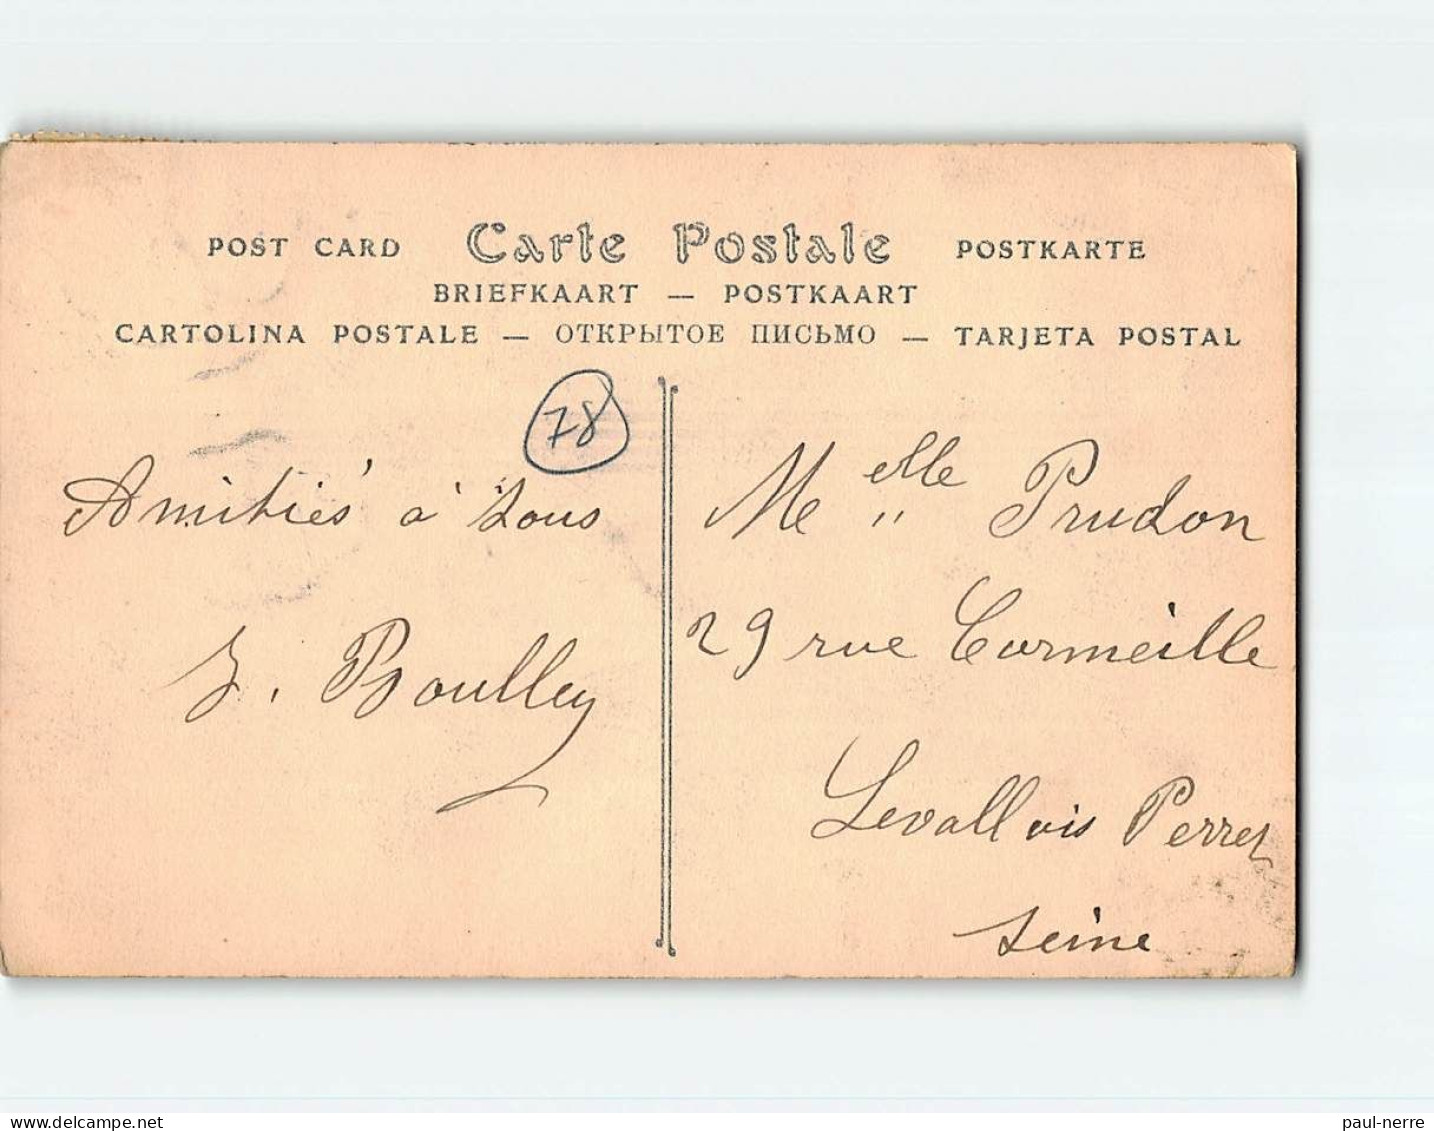 POST CARD Carte Postale POSTKARTE
BRIEFKAART — POSTKAART
CARTOLINA POSTALE — ОТКРЫТОЕ ПИСЬМО — TARJETA POSTAL
78
Amitiés à tous
Boulley
Melle Prudon
29 rue Cormeille
Levallois Perret
Seine
paul-nerre